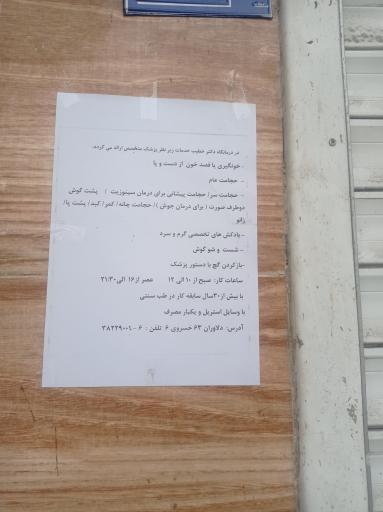 در درمانگاه دکتر خطیب خدمات زیر نظر پزشک متخصص ارائه می گردد.
- خونگیری یا فصد خون از دست و پا
- حجامت عام
- حجامت سر/ حجامت پیشانی برای درمان سینوزیت ) پشت گوش
دوطرف صورت ( برای درمان جوش )/ حجامت چانه/ کمر/ کبد/ پشت پا/
زانو
- بادکش های تخصصی گرم و سرد
- شست و شو گوش
-بازکردن گچ با دستور پزشک
ساعات کار: صبح از ۱۰ الی ۱۲ عصر از۱۶ الی۲۱:۳۰
با بیش از۳۰سال سابقه کار در طب سنتی
با وسایل استریل و یکبار مصرف
آدرس: دلاوران ۶۳ خسروی ۶ تلفن : ۶ -۳۸۲۲۹۰۰۴